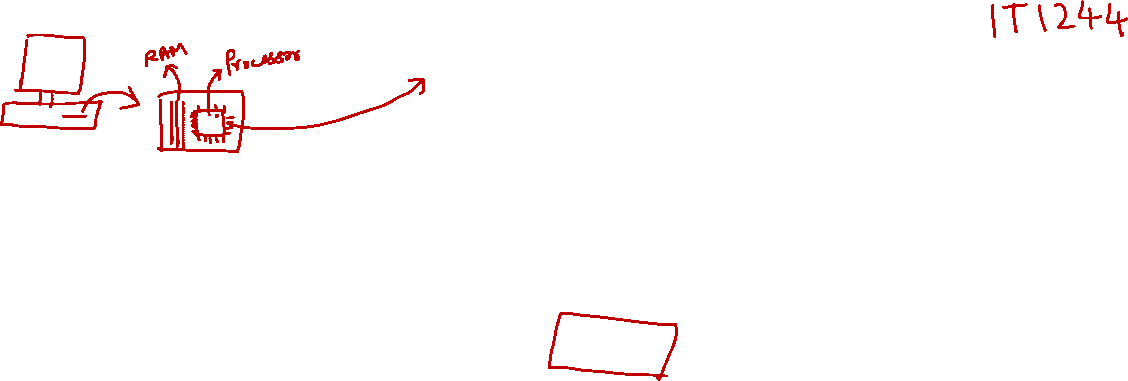 IT1244
RAM
Processor